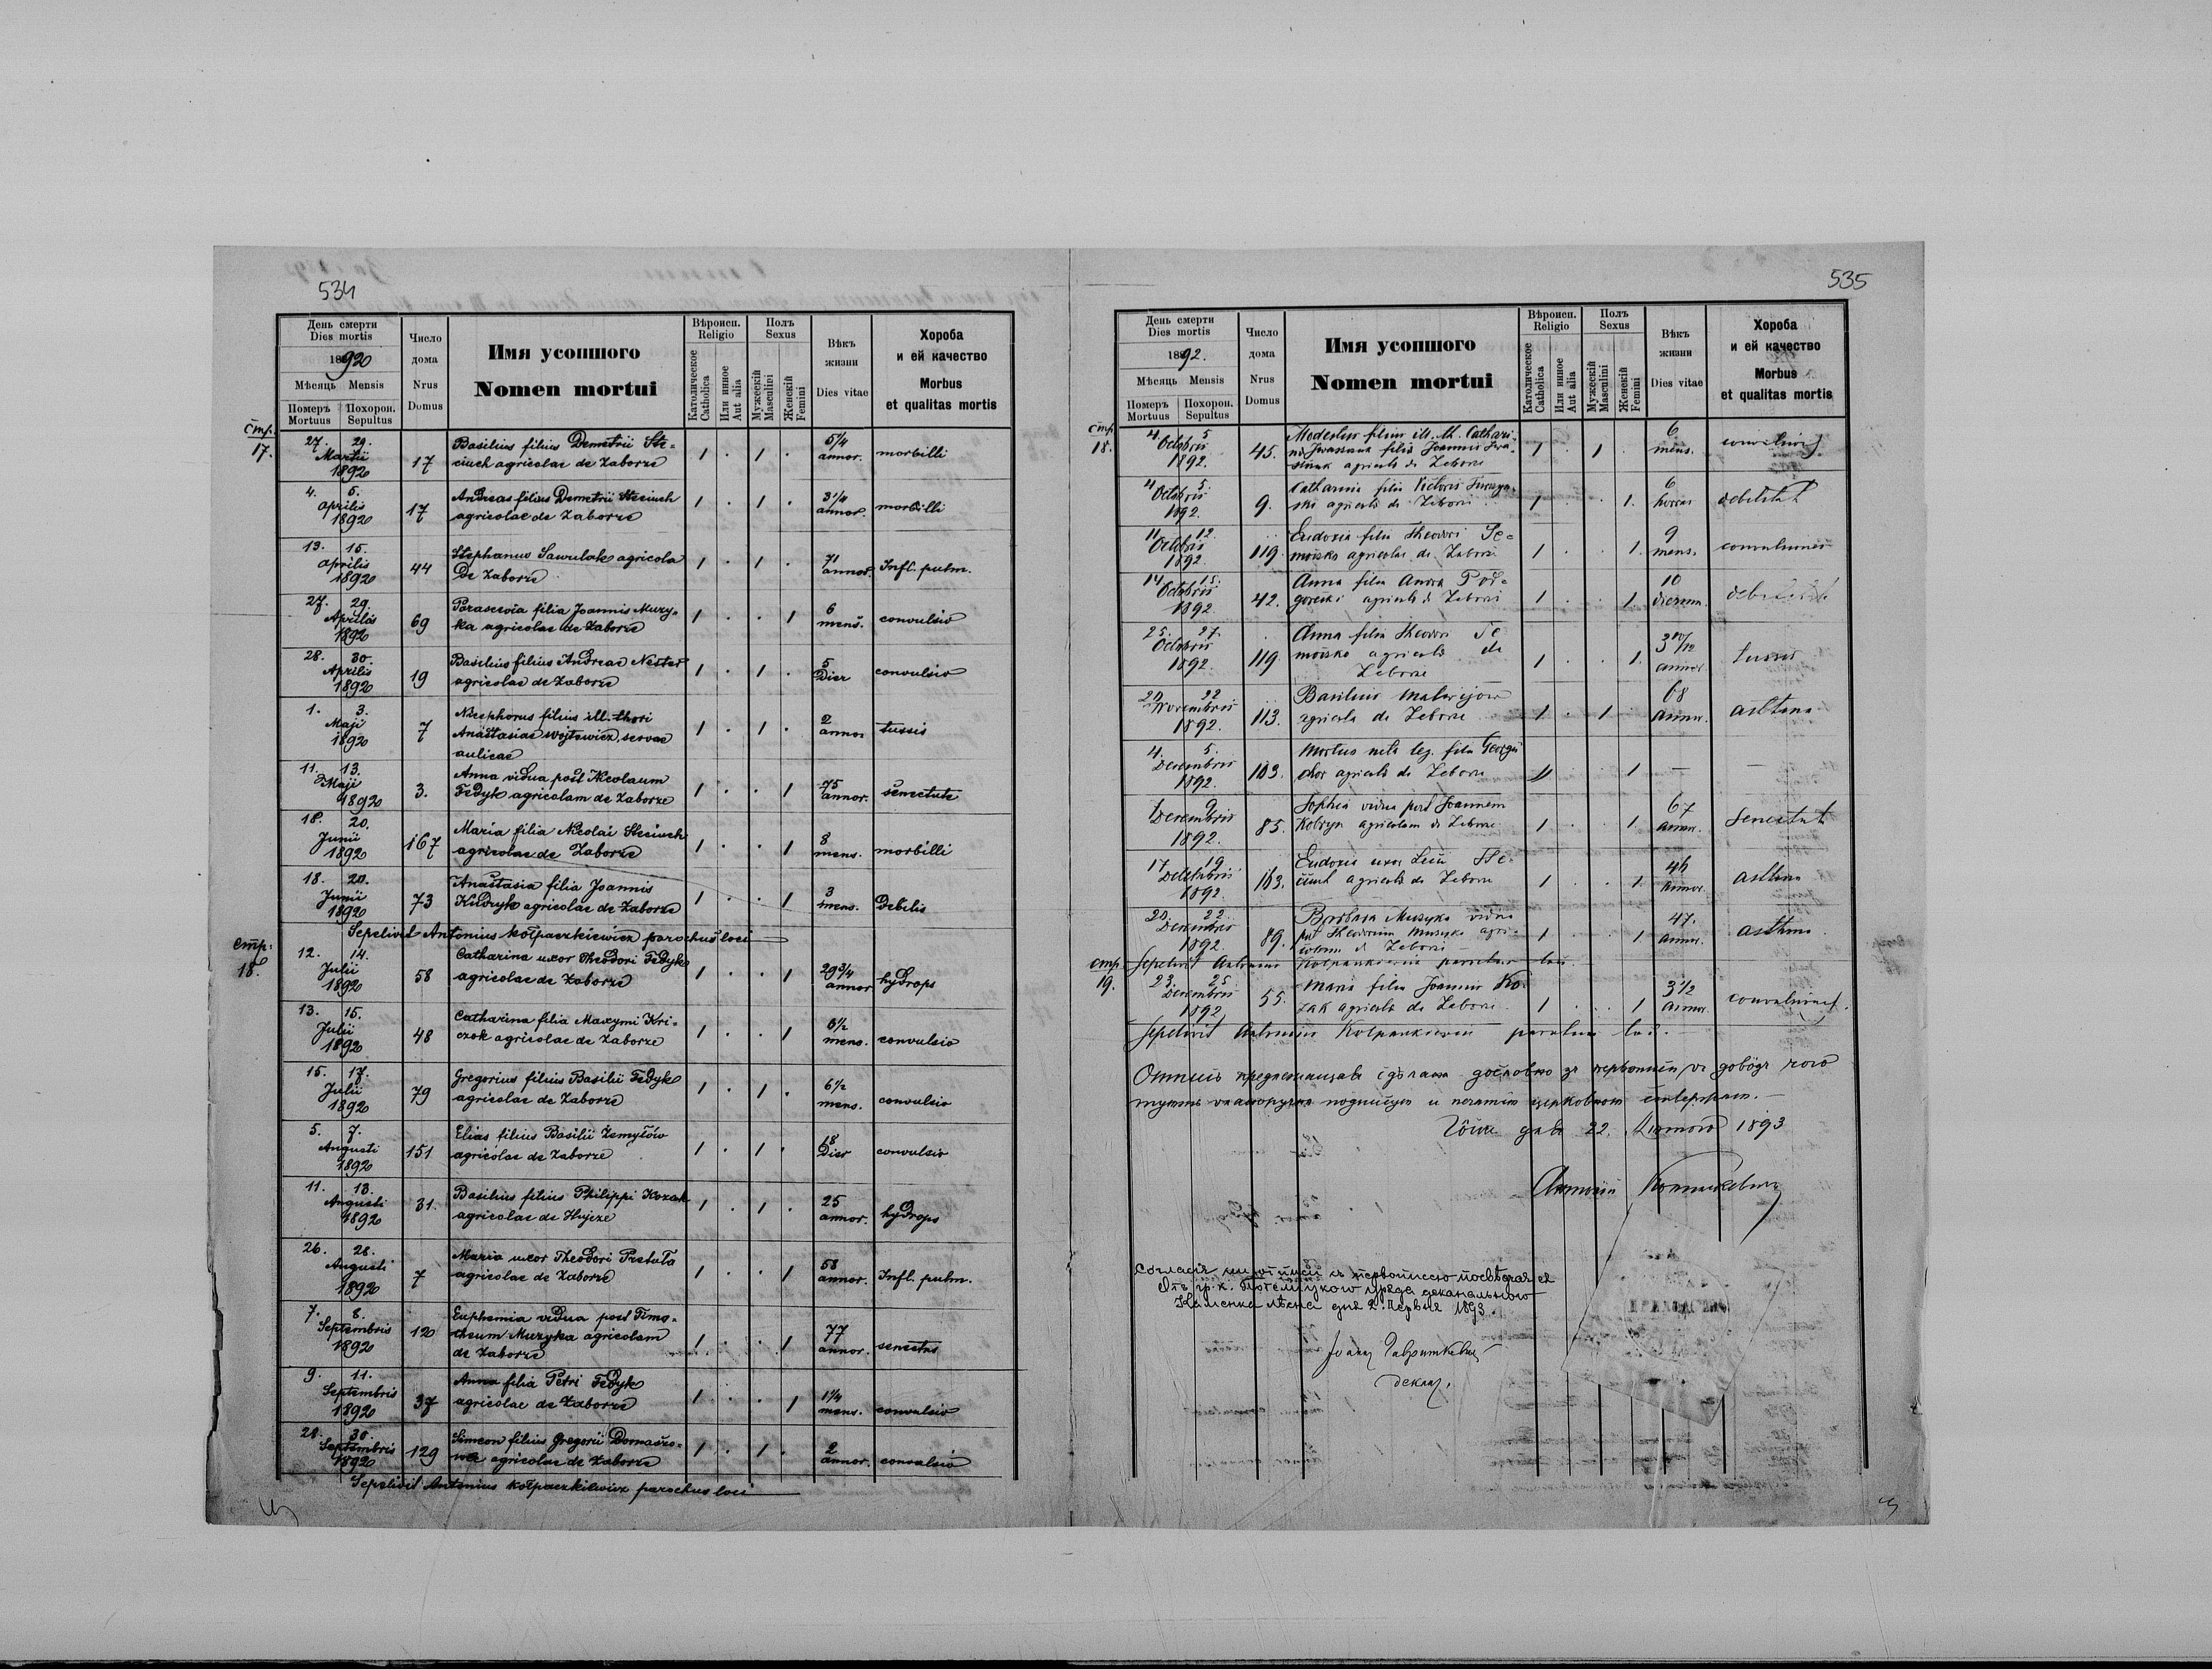 534
День смерти
Dies mortis
1892
Мѣсяць Mensis
Померъ Mortuus
Похорон. Sepultus
Число дома
Nrus Domus
Имя усопшого
Nomen mortui
Вѣроисп.
Religio
Католическое Catholica
Или инное Aut alia
Полъ
Sexus
Мужескій Masculini
Женскій Femini
Вѣкъ жизни
Dies vitae
Хороба
и ей качество
Morbus
et qualitas mortis
Стр. 17.
27. 29. Basilius filius Demetrii Ste- 5 1/4
Martii 1892 17 ciuch agricolae de Zaborze 1 . 1 . annor. morbilli
4. 5. Andreas filius Demetrii Steciuch 3 1/4
Aprilis 1892 17 agricolae de Zaborze 1 . 1 . annor. morbilli
13. 15. Stephanus Sawulak agricola 71
Aprilis 1892 44 de Zaborze 1 . 1 . annor. Infl. pulm.
27. 29. Parascevia filia Joannis Muzy- 6
Aprilis 1892 69 ka agricolae de Zaborze 1 . . 1 mens. convulsio
28. 30. Basilius filius Andreae Nester 5
Aprilis 1892 19 agricolae de Zaborze 1 . 1 . dier convulsio
1. 3. Nicephorus filius ill. thori 2
Maji 1892 7 Anastasiae Wojtowicz, servae 1 . 1 . annor tussis
aulicae
11. 13. Anna vidua post Nicolaum 75
Maji 1892 3. Fedyk agricolam de Zaborze 1 . . 1 annor. senectute
18. 20. Maria filia Nicolai Steciuch 8
Junii 1892 167 agricolae de Zaborze 1 . . 1 mens. morbilli
18. 20. Anastasia filia Joannis 3
Junii 1892 73 Kudryk agricolae de Zaborze 1 . . 1 mens. debilis
Sepelivit Antonius Kołpaczkiewicz parochus loci
Стр. 18.
12. 14. Catharina uxor Theodori Fedyk 29 3/4
Julii 1892 58 agricolae de Zaborze 1 . . 1 annor hydrops
13. 15. Catharina filia Maxymi Kri- 6 1/2
Julii 1892 48 czok agricolae de Zaborze 1 . . 1 mens. convulsio
15. 17. Gregorius filius Basilii Fedyk 6 1/2
Julii 1892 79 agricolae de Zaborze 1 . 1 . mens. convulsio
5. 7. Elias filius Basilii 18
Augusti 1892 151 agricolae de Zaborze 1 . 1 . dier convulsio
11. 13. Basilius filius Philippi Kozak 25
Augusti 1892 31. agricolae de Hujcze 1 . 1 . annor. hydrops
26. 28. Maria uxor Theodori Pretuła 58
Augusti 1892 7 agricolae de Zaborze 1 . . 1 annor. Infl. pulm.
7. 8. Euphemia vidua post Timo-
Septembris 1892 120 theum Muzyka agricolam 1 . . 1 77 annor. senectus
de Zaborze
9. 11. Anna filia Petri Fedyk 1 1/4
Septembris 1892 37 agricolae de Zaborze 1 . . 1 mens. convulsio
28. 30. Simeon filius Gregorii Domaszo- 2
Septembris 1892 129 wce agricolae de Zaborze 1 . 1 . annor. convulsio
Sepelivit Antonius Kołpaczkiewicz parochus loci
535
День смерти
Dies mortis
1892.
Мѣсяць Mensis
Померъ Mortuus
Похорон. Sepultus
Число дома
Nrus Domus
Имя усопшого
Nomen mortui
Вѣроисп.
Religio
Католическое Catholica
Или инное Aut alia
Полъ
Sexus
Мужескій Masculini
Женскій Femini
Вѣкъ жизни
Dies vitae
Хороба
и ей качество
Morbus
et qualitas mortis
Стр. 18.
4 5 Modestus filius ill. th. Cathari- 6
Octobris 1892. 45. filia Joannis 1 . 1 . mens.
agricola de Zaborze
4 5. Catharina filia Victoris 6
Octobris 1892. 9. ski agricola de Zaborze 1 . . 1. horas debilitat
11 12. Eudoxia filia Theodori Te- 9
Octobris 1892. 119. moisko agricolae de Zaborze 1 . . 1. mens. convulsiones
14 15. Anna filia Pod- 10
Octobris 1892. 42. agricola de Zaborze 1 . . 1. dierum.
25. 27. Anna filia Theodori Te 3 10/12
Octobris 1892. 119. moisko agricola de 1 . . 1. annor tussis
Zaborze
20 22 Basilius 68
Novembris 1892. 113. agricola de Zaborze 1 . 1 . annor. asthma
4. 5. Mortuo nata leg. filia Georgii
Decembris 1892. 103. agricola de Zaborze 1 . . 1 — —
9 Sophia vidua post Joannem 67
Decembris 1892. 85. agricolam de Zaborze 1 . . 1. annor. Senectut
17 19 Eudoxia uxor Ste-
1892. 103. agricola de Zaborze 1 . . 1. annor. asthma
20. 22. Barbara Muzyka vidua 47.
Decembris 1892. 89. post Theodorum Muzyka agri- 1 . . 1 annor. asthma
colam de Zaborze
Sepelivit Antonius Kołpaczkiewicz parochus loci.
Стр. 19.
23. 25. Maria filia Joannis Ko- 3 1/2
Decembris 1892 55. zak agricola de Zaborze 1 . . 1 annor.
Sepelivit Antonius Kołpaczkiewicz parochus loci.
дословно
подписую и печатію церковною
дня 22. Лютого 1893
Антоній
Отъ гр. к. уряда деканального
Каменка дня 2. 1893.
декан.